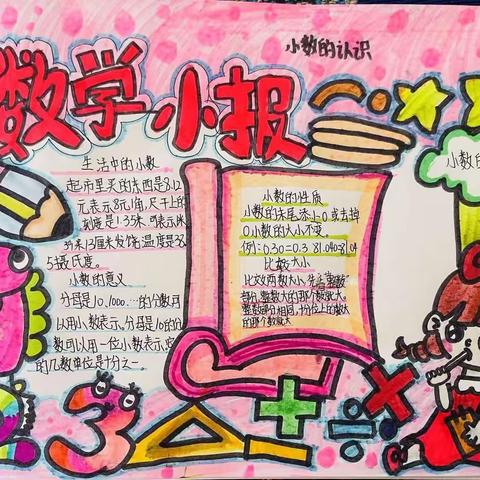 小数的认识
数学小报
生活中的小数
超市里买的东西是8.12
元表示8元1角,尺子上的
刻度是1.35米,可表示1米
3分米13厘米发饶温度是38
5摄氏度。
小数的意义
分母是10,1000…的分数可
以用小数表示。分母是10的分
数可以用一位小数表示,它
的几数单位是十分之一
小数的性质
小数的末尾添上0或去掉
0小数的大小不变。
例:0.30=0.3 81.040=81.04
比较大小
比较两数大小,先看整数
部分,整数大的那个数就大。
整数部分相同,十分位上的数大
的那个数就大
小数的